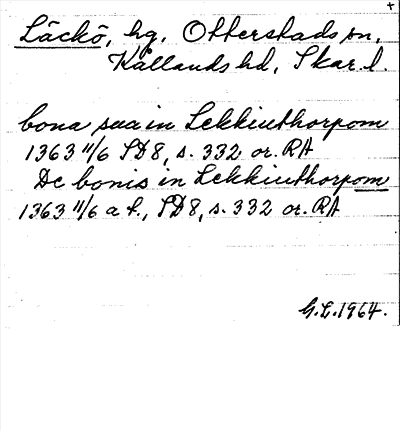 Läckö, hg. Otterstads sn,
Kållands hd, Skar. l.
bona sua in Lekkiuthorpom
1363 11/6 SD8, s. 332 or. RA
De bonis in Lekkiuthorpom
1363 11/6 a t., SD8, s. 332 or. RA
G.L.1964.